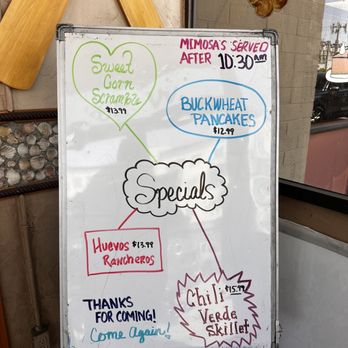 MIMOSA'S SERVED
AFTER 10:30 am
Sweet
Corn
Scramble
$13.99
BUCKWHEAT
PANCAKES
$12.99
Specials
HUEVOS $13.99
RANCHEROS
Chili $15.99
Verde
Skillet
THANKS
FOR COMING!
Come Again!